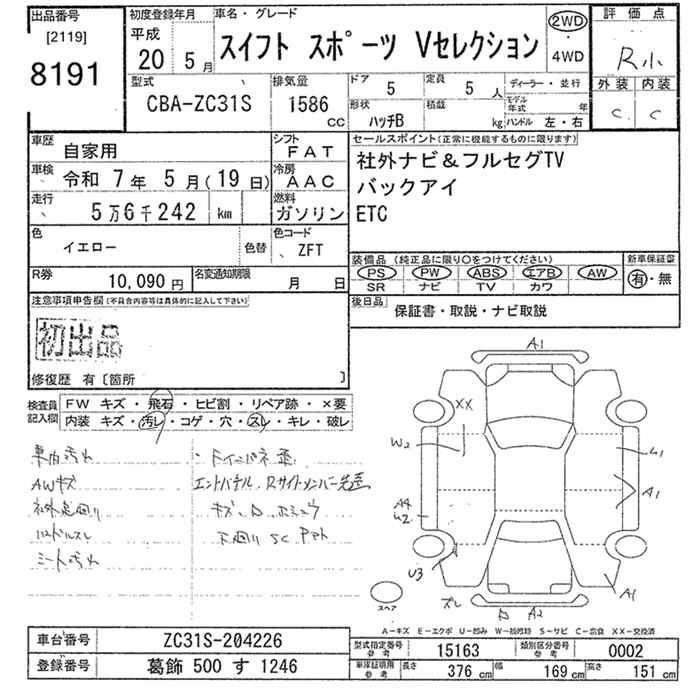 出品番号
[2119]
8191
初度登録年月
平成
20 5 月
車名・グレード
スイフト スポーツ Vセレクション
2WD
・
4WD
評価点
R小
外装 内装
C C
型式
CBA-ZC31S
排気量
1586
CC
ドア
5
定員
5 人
ディーラー・並行
形状
ハッチB
積載
kg
モデル年式
年
ハンドル 左・右
車歴
自家用
シフト
FAT
車検
令和 7 年 5 月 ( 19 日)
冷房
AAC
走行
5 万 6 千 242 km
燃料
ガソリン
色
イエロー
色替
色コード
ZFT
R券
10,090 円
名変通知期限
月 日
セールスポイント(正常に機能するものに限ります)
社外ナビ&フルセグTV
バックアイ
ETC
装備品 (純正品に限り○をつけてください)
PS PW ABS エアB AW
SR ナビ TV カワ
新車保証書
有・無
後日品
保証書・取説・ナビ取説
注意事項申告欄 (不具合内容等は具体的に記入して下さい)
初出品
修復歴 有〔箇所 〕
検査員記入欄
FW キズ・飛石・ヒビ割・リペア跡・×要
内装 キズ・汚レ・コゲ・穴・スレ・キレ・破レ
車内汚れ
AWキズ
社外足回り
ハンドルスレ
シート汚れ
A1
XX
W2
U1
A1
A4
U2
U3
A1
ズレ
A2
スペア
A-キズ E-エクボ U-凹み W-補修跡 S-サビ C-腐食 XX-交換済
車台番号
ZC31S-204226
登録番号
葛飾 500 す 1246
型式指定番号
参考
15163
類別区分番号
参考
0002
車庫証明用
参考
長さ
376 cm
幅
169 cm
高さ
151 cm